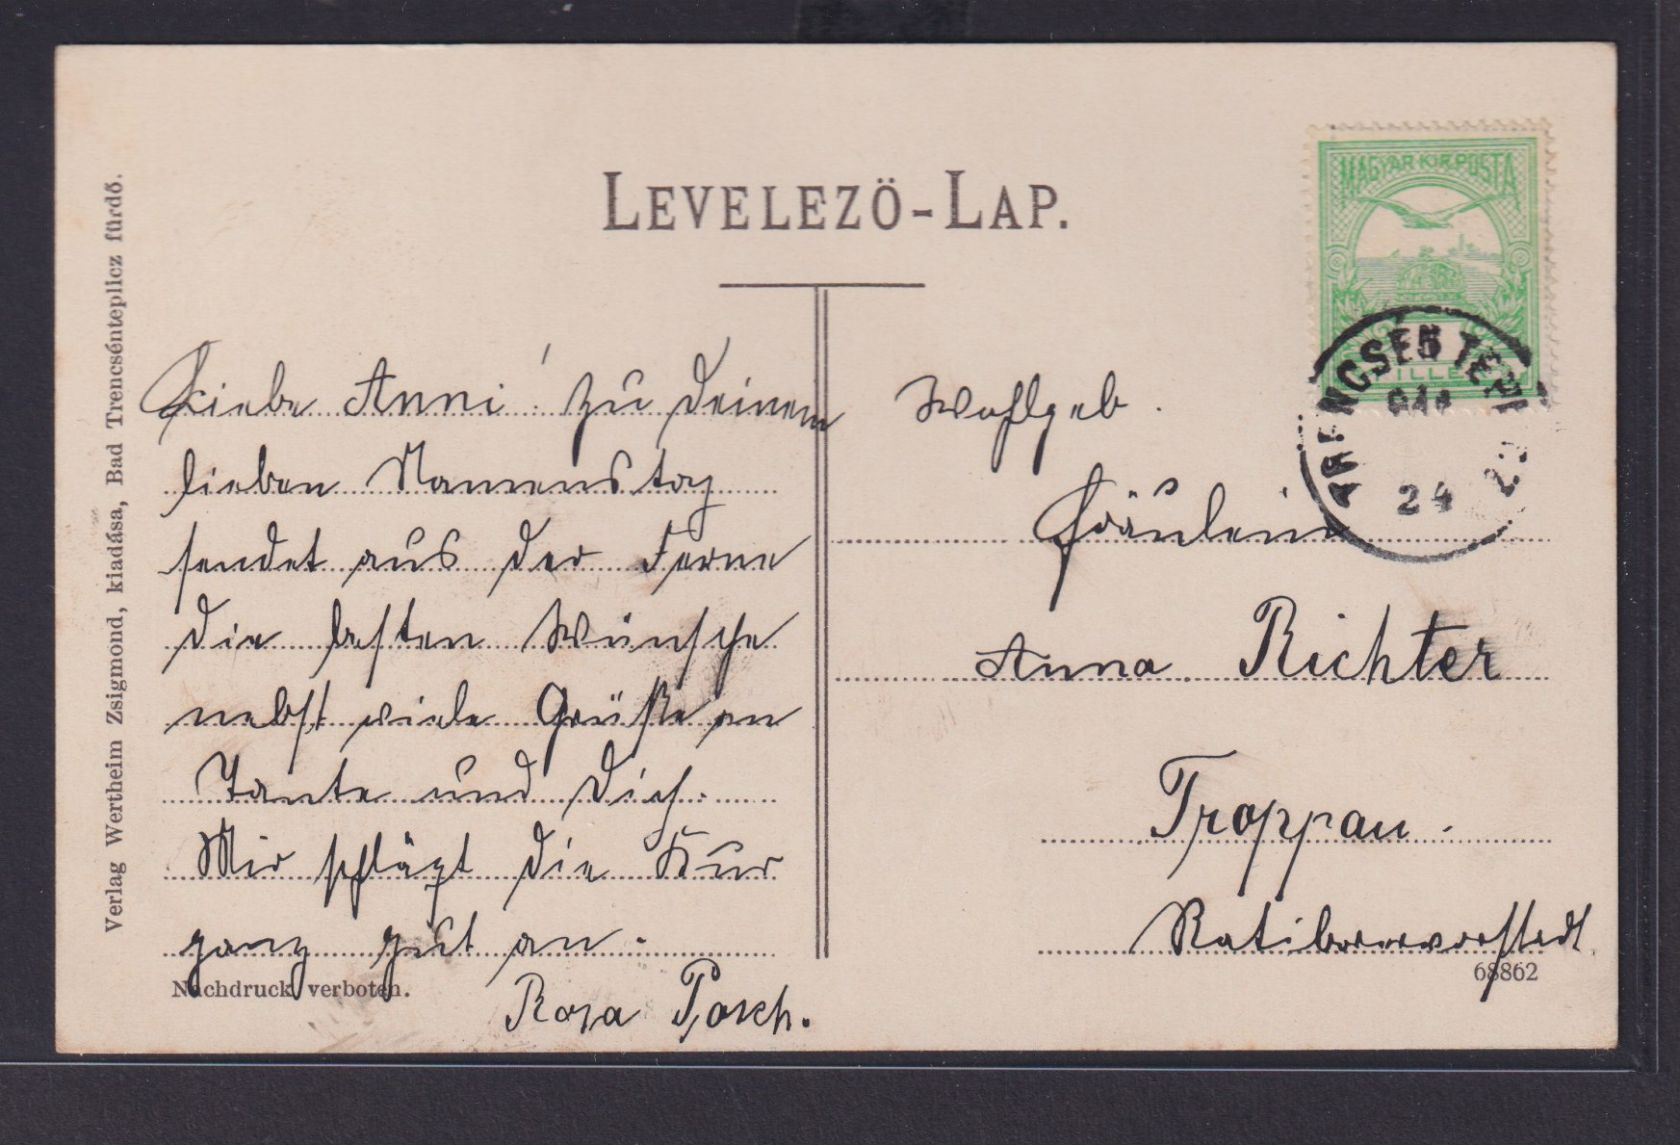 LEVELEZÖ-LAP.
MAGYAR KIR. POSTA
TRENCSÉN TEPL
911
24
Liebe Anni! Zu Deinem
lieben Namenstag
sendet aus der Ferne
die besten Wünsche
nebst viele Grüße an
Tante und Dich.
Mir schlägt die Kur
ganz gut an.
Rosa
Wohlgeb.
Fräulein
Anna Richter
Troppau.
Ratiborervorstadt
Nachdruck verboten.
68862
Verlag Wertheim Zsigmond, kiadása, Bad Trencsénteplicz fürdő.